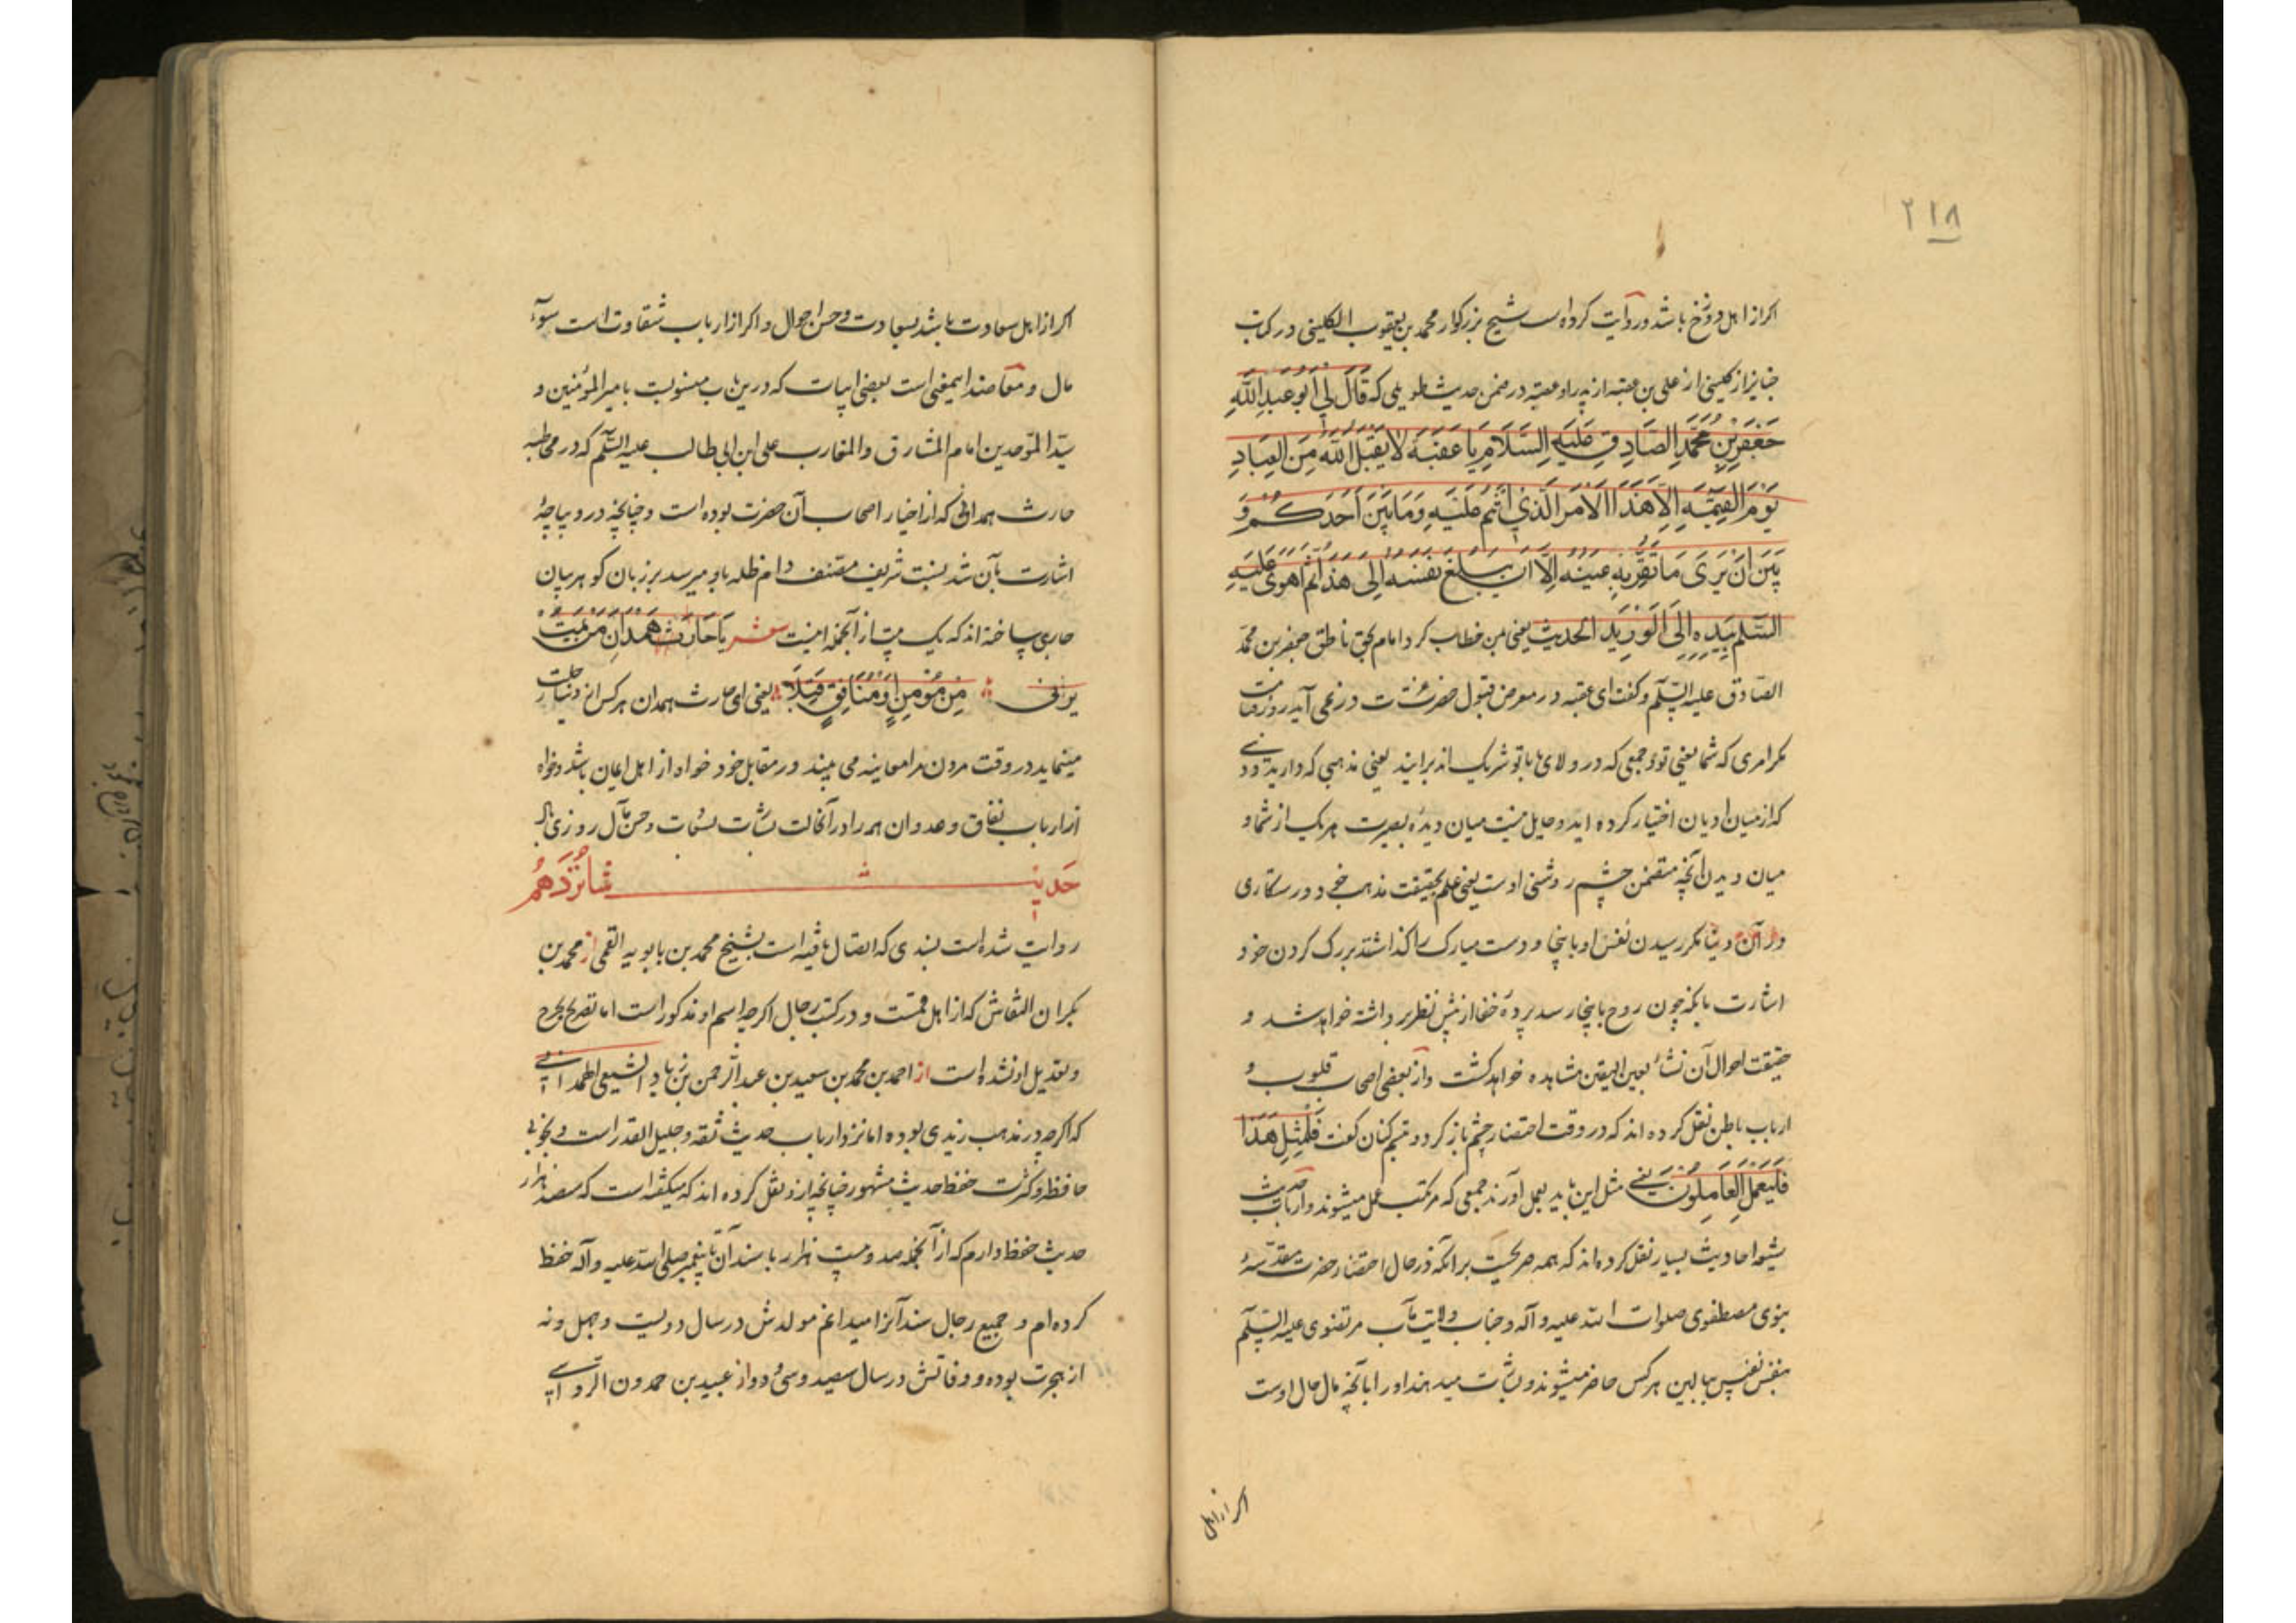 ٢١٨
اکر از اهل دوزخ باشد و روایت کرده است شیخ بزرکوار محمد بن یعقوب الکلینی در کتاب
جنایز از کلینی از علی بن عقبه از پدر او عقبه در ضمن حدیث طویلی که قَالَ لِی اَبُو عَبدِ اللّٰهِ
جَعفَرِ بْنِ مُحَمَّدِ الصَّادِقِ عَلَیهِ السَّلَامِ یَا عُقبَةُ لَا یَقبَلُ اللّٰهُ مِنَ العِبَادِ
یَوْمَ القِیٰمَةِ اِلَّا هَذَا الاَمرَ الَّذِی اَنتُم عَلَیهِ وَمَا بَینَ اَحَدِکُم وَ
بَینَ اَنْ یَرَی مَا تَقَرُّ بِهِ عَینُهُ اِلَّا اَن یَبلُغَ نَفسُهُ اِلَی هَذِهِ ثُمَّ اَهوَی عَلَیهِ
السَّلَم بِیَدِهِ اِلَی الوَرِیدِ الحدیث یعنی بمن خطاب کرد امام بحق ناطق جعفر بن محمد
الصّادق علیه السّلم و کفت ای عقبه در معرض قبول حضرت عزت در نمی آید روز قیامت
مکر امری که شما یعنی تو و جمعی که در ولای ما با تو شریک اند برانید یعنی مذهبی که دارید و دینی
که از میان ادیان اختیار کرده اید و حایل نیست میان دیدهٔ بصیرت هر یک از شما و
میان دیدن آنچه متضمن چشم روشنی اوست یعنی علم بحقیقت مذهب خود و رستکاری
در آن دنیا مکر رسیدن نفس او باینجا و دست مبارک را کذاشتند بر رک کردن خود
اشارت بانکه چون روح باینجا رسد پردهٔ خفا از پیش نظر برداشته خواهد شد و
حقیقت احوال آن نشأ بعین الیقین مشاهده خواهد کشت و از بعضی اصحاب قلوب و
ارباب باطن نقل کرده اند که در وقت احتضار چشم باز کرد و تبسم کنان کفت فَلِمِثلِ هَذَا
فَلیَعمَلِ العَامِلُونَ یعنی مثل این باید بعمل آورند جمعی که مرتکب عمل میشوند و ارباب حدیث
شیعه احادیث بسیار نقل کرده اند که همه صریحست بر انکه در حال احتضار حضرت مقدسهٔ
نبوی مصطفوی صلوات الله علیه و آله و جناب ولایت مآب مرتضوی علیه السّلم
بنفس نفیس ببالین هر کس حاضر میشوند و بشارت میدهند او را بآنچه مآل حال اوست
اکر از اهل
اکر از اهل سعادت باشد بسعادت و حسن احوال و اکر از ارباب شقاوت است بسوء
مآل و معاضد ایمعنی است بعضی ابیات که درین باب منسوبست بامیر المؤمنین و
سیّد الموّحدین امام المشارق و المغارب علی ابن ابی طالب علیه السّلم که در مخاطبهٔ
حارث همدانی که از اخیار اصحاب آن حضرت بوده است و چنانچه در دیباچهٔ
اشارت بآن شد نسبت شریف مصنف دام ظله باو میرسد بر زبان کوهر بیان
جاری ساخته اند که یک بیت از آنجمله اینست شعر یَا حَارِثُ هَمدَانِ مَن یَمُت
یرَنی مِن مُؤمِنٍ اَو مُنَافِقٍ قِبَلَا یعنی ای حارث همدان هر کس از دنیا رحلت
مینماید در وقت مردن مرا معاینه می بیند در مقابل خود خواه از اهل ایمان باشد و خواه
از ارباب نفاق و عدوان همه را در آنحالت بشارت نجات و حسن مآل روزی باد
حَدیث شانزدهم
روایت شده است بسندی که اتصال یافته است بشیخ محمد بن بابویه القمی از محمد بن
بکران النقاش که از اهل قمست و در کتب رجال اکرچه اسم او مذکور است اما تصریح بجرح
و تعدیل او نشده است از احمد بن محمد بن سعید بن عبد الرحمن بن زیاد السبیعی الهمدانی
که اکرچه در مذهب زیدی بوده اما نزد ارباب حدیث ثقه و جلیل القدر است و بخوبی
حافظه و کثرت حفظ حدیث مشهور چنانچه ازو نقل کرده اند که میکفته است که سیصد هزار
حدیث حفظ دارم که از آنجمله صد و بیست هزار با سند آن تا پیغمبر صلی الله علیه و آله حفظ
کرده ام و جمیع رجال سند آنرا میدانم مولدش در سال دویست و چهل و نه
از هجرت بوده و وفاتش در سال سیصد و سی و دو از عبید بن حمدون الرواسی